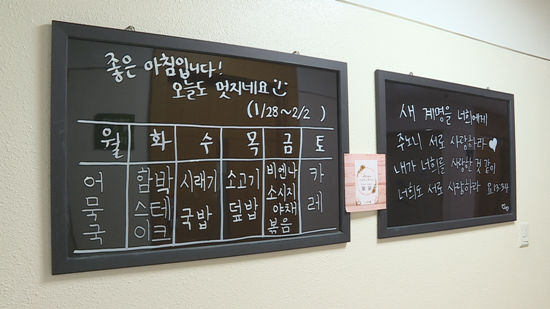 좋은 아침입니다!
오늘도 멋지네요
(1/28~2/2)
월 화 수 목 금 토
어묵국
함박스테이크
시래기국밥
소고기덮밥
비엔나소시지야채볶음
카레
새 계명을 너희에게
주노니 서로 사랑하라
내가 너희를 사랑한 것 같이
너희도 서로 사랑하라 요 13:34